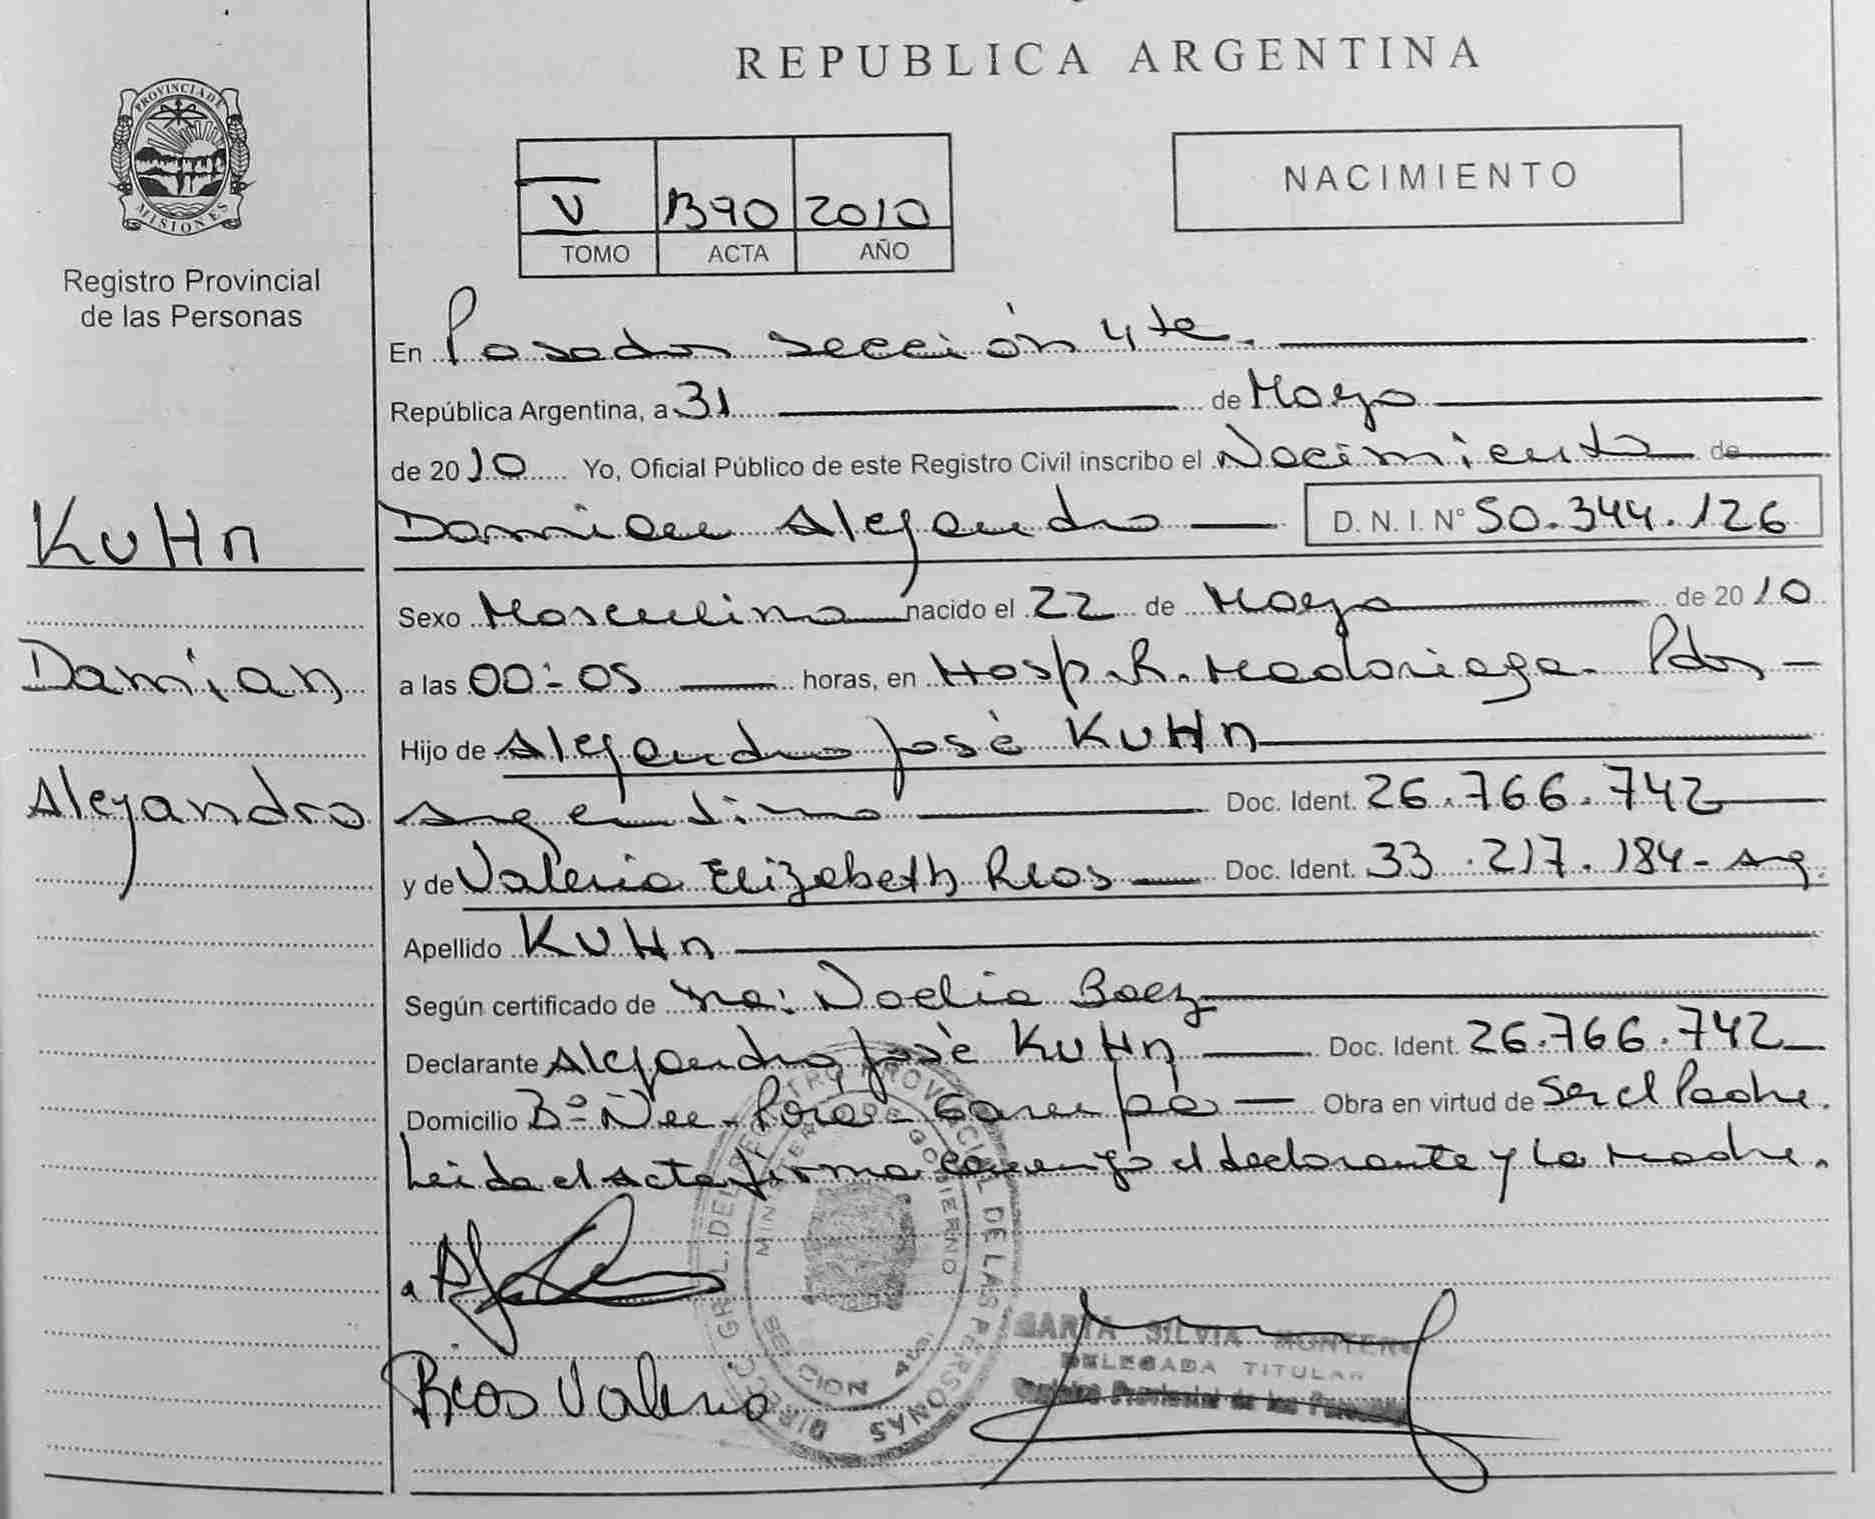 REPUBLICA ARGENTINA
PROVINCIA DE MISIONES
Registro Provincial
de las Personas
NACIMIENTO
V 1390 2010
TOMO ACTA AÑO
En Posadas sección 4ta.
República Argentina, a 31 de Mayo
de 2010 Yo, Oficial Público de este Registro Civil inscribo el Nacimiento de
KuHn
Damian Alejandro D. N. I. N° 50.344.126
Sexo Masculino nacido el 22 de Mayo de 2010
Damian
a las 00:05 horas, en Hosp. R. Madariaga. Pdas
Hijo de Alejandro José KuHn
Alejandro
Argentino Doc. Ident. 26.766.742
y de Valeria Elizabeth Rios Doc. Ident. 33.217.184 - Arg.
Apellido KuHn
Según certificado de Noelia Baez
Declarante Alejandro José KuHn Doc. Ident. 26.766.742
Domicilio B° Ñee-Porá - Garupá Obra en virtud de Ser el Padre.
Leida el acta firma conmigo el declarante y la Madre.
DIRECC. GRAL. DEL REGISTRO PROVINCIAL DE LAS PERSONAS
MINISTERIO DE GOBIERNO
SECCION 4ta
SILVIA MONTERO
DELEGADA TITULAR
Registro Provincial de las Personas
Rios Valeria